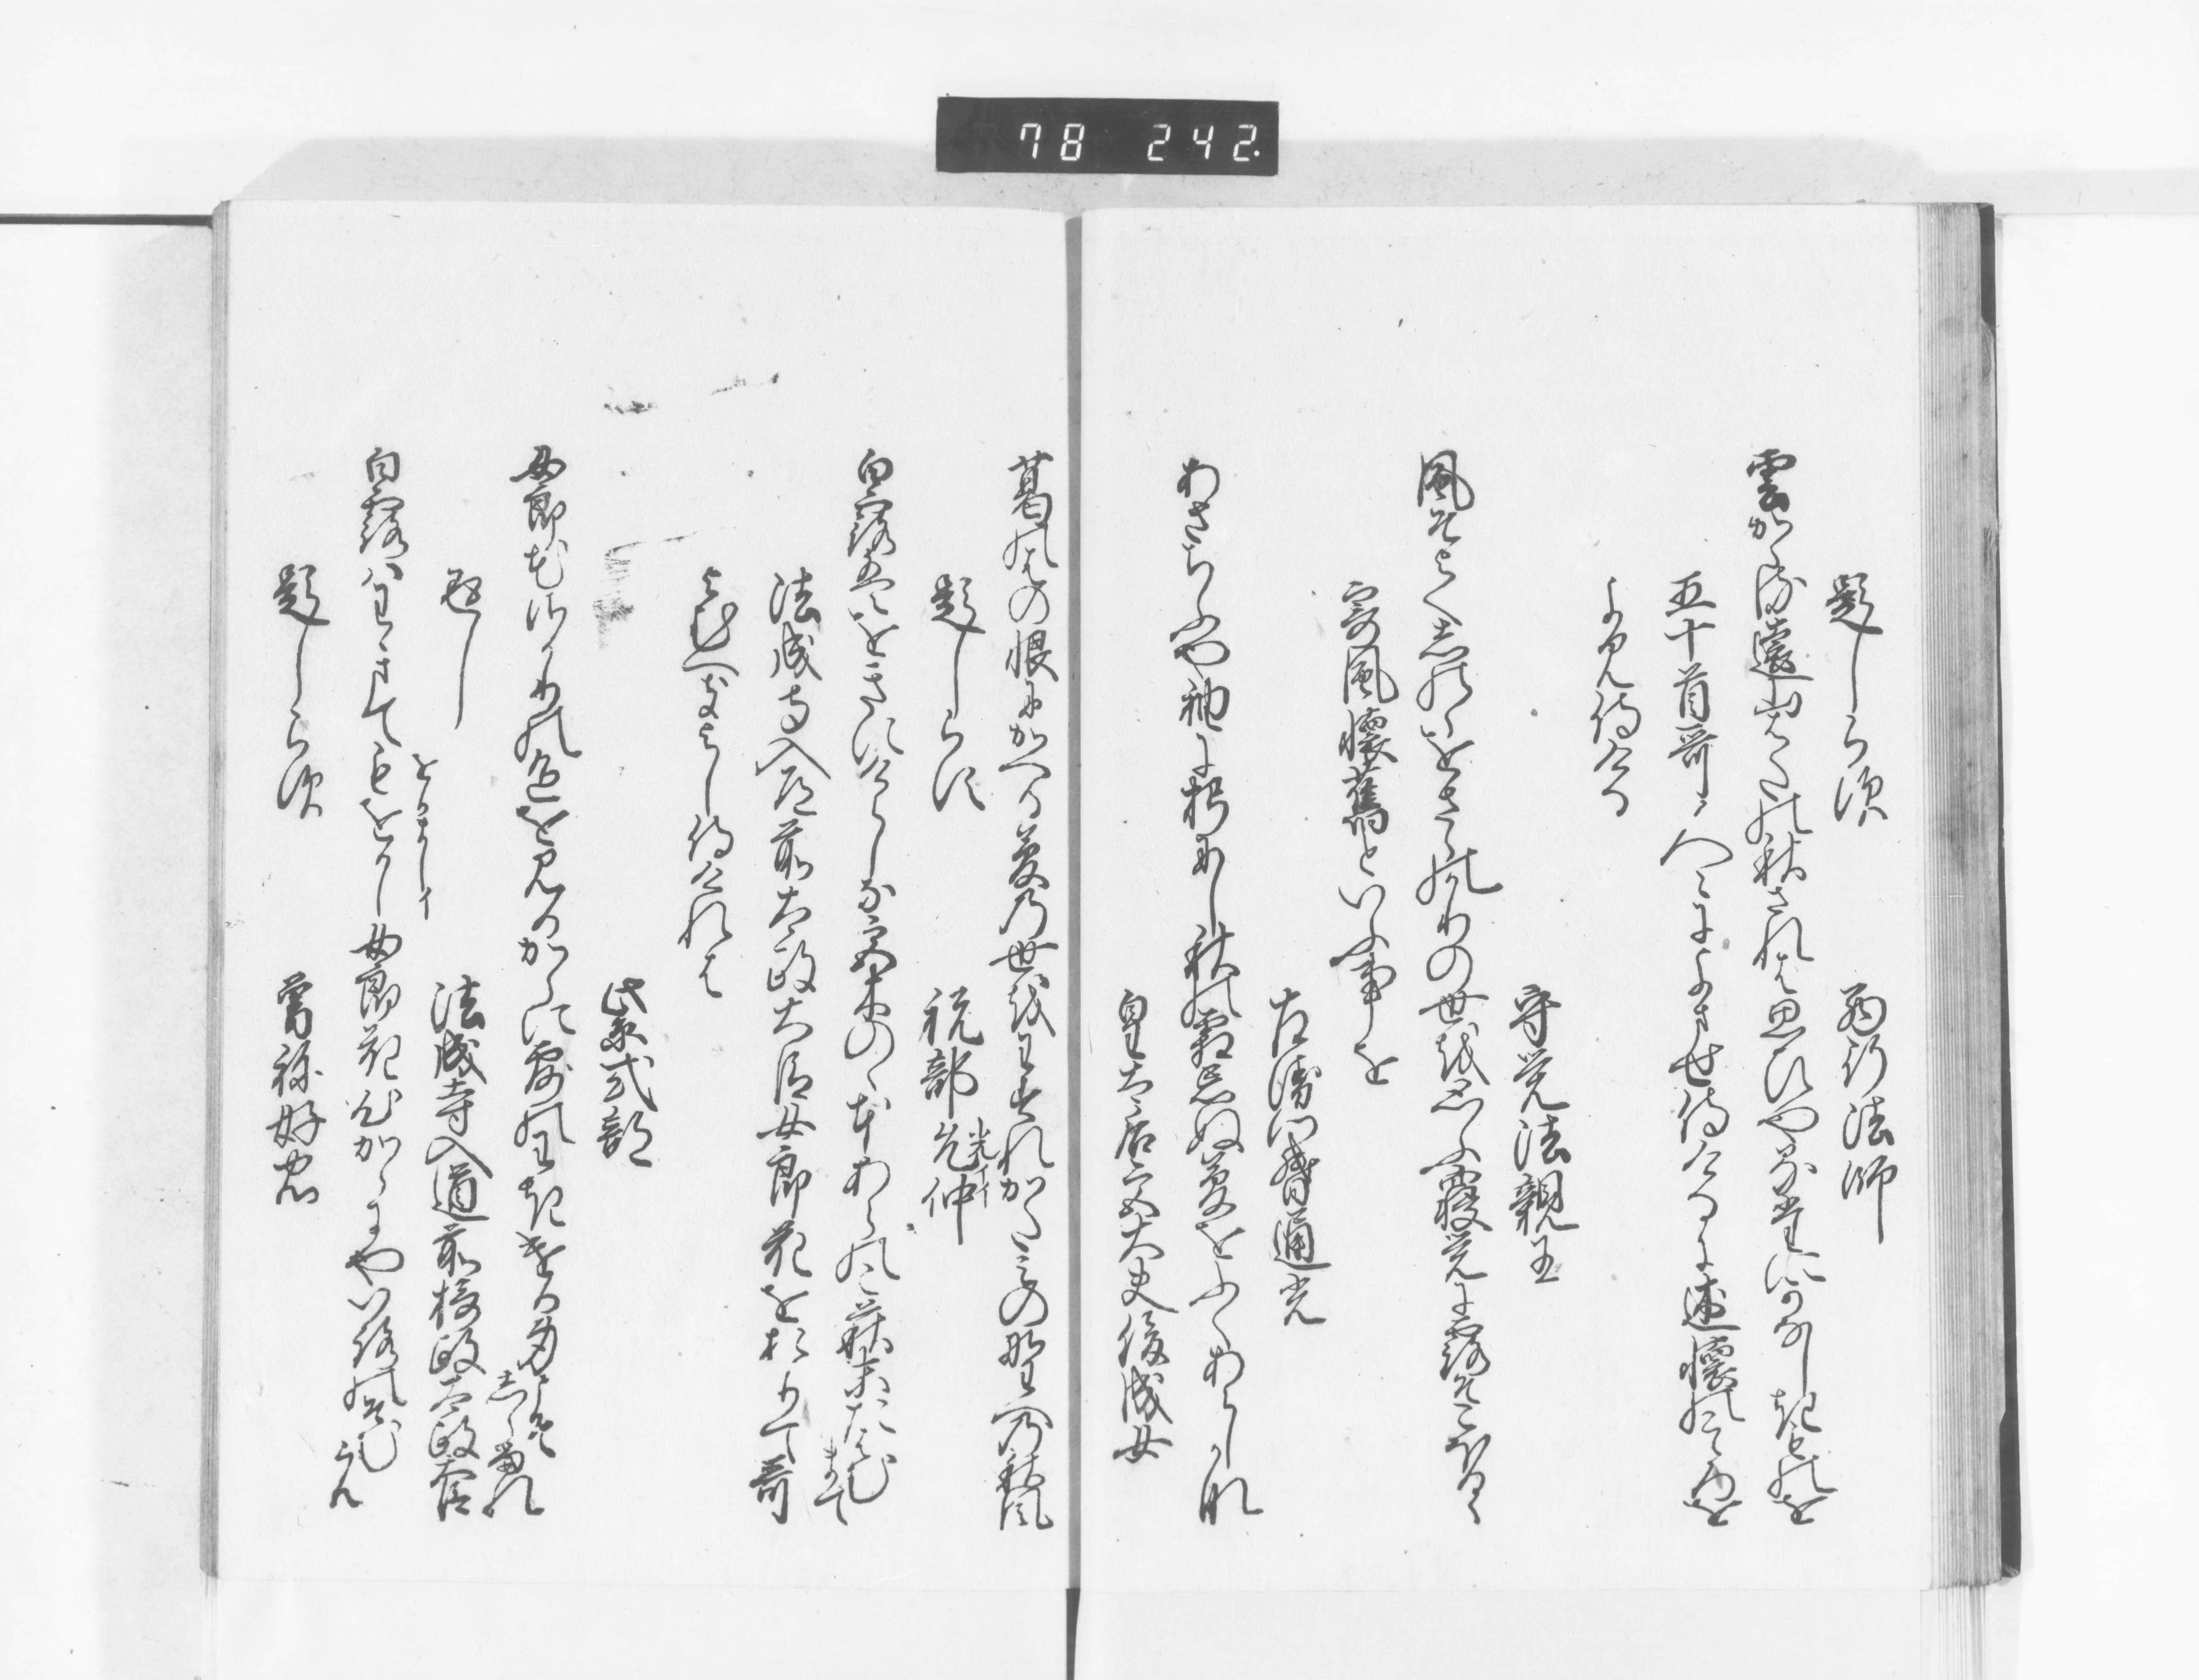 78 242.
題しらす 西行法師
雲かゝる遠山はたの秋されは思ひやるたにかなしき物を
五十首哥人々によませ侍けるに述懐の心を
よみ侍ける
守覚法親王
風そよくしのゝをさゝのかりの世を思ふ寝覚に露そこほるゝ
寄風懐舊といふ事を
左衛門督通光
あさちふや袖に朽にし秋の霜忘ぬ夢をふくあらしかな
皇太后宮大夫俊成女
葛の葉の恨にかへる夢の世をわすれかたみの野への秋風
題しらす 祝部允仲
光イ
白露はをきにけらしな宮木のゝもとあらの萩の末たはむまて
法成寺入道前太政大臣女郎花をおりて哥
よむへきよし侍けれは
紫式部
女郎花さかりの色を見るからに露のわきける身こそしらるれ
返し 法成寺入道前摂政太政大臣
白露はわきてもをかし女郎花心からにや色の染むらん
をかましイ
題しらす 曽祢好忠